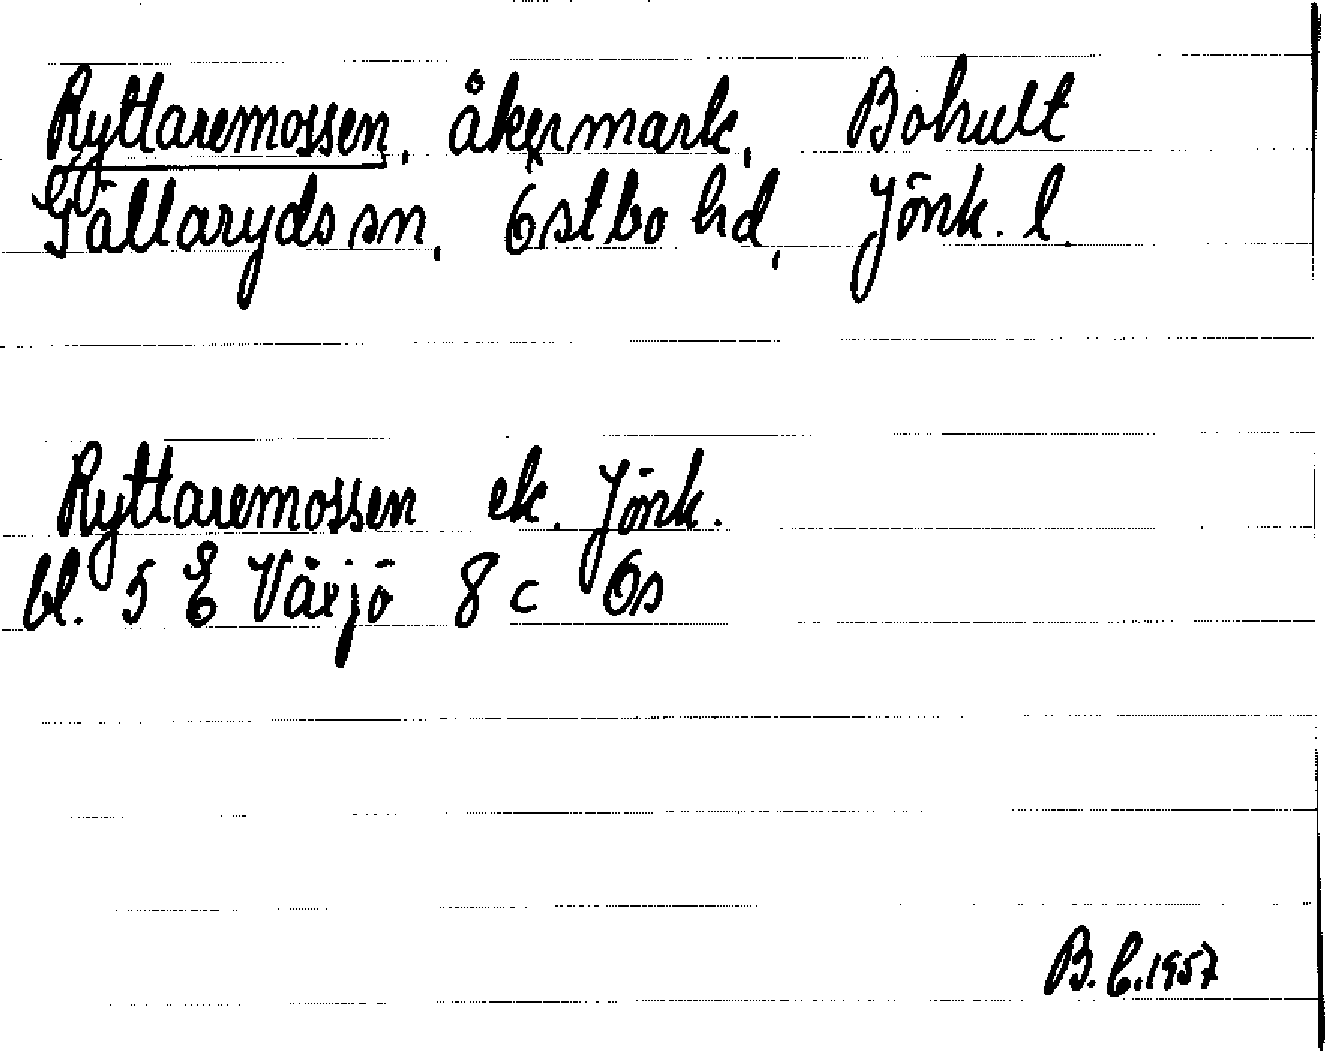 Ryttaremossen, åkermark, Bohult
Gällaryds sn, Östbo hd, Jönk. l.
Ryttaremossen ek. Jönk.
bl. 5 E Växjö 8 c Ös
B. C. 1957